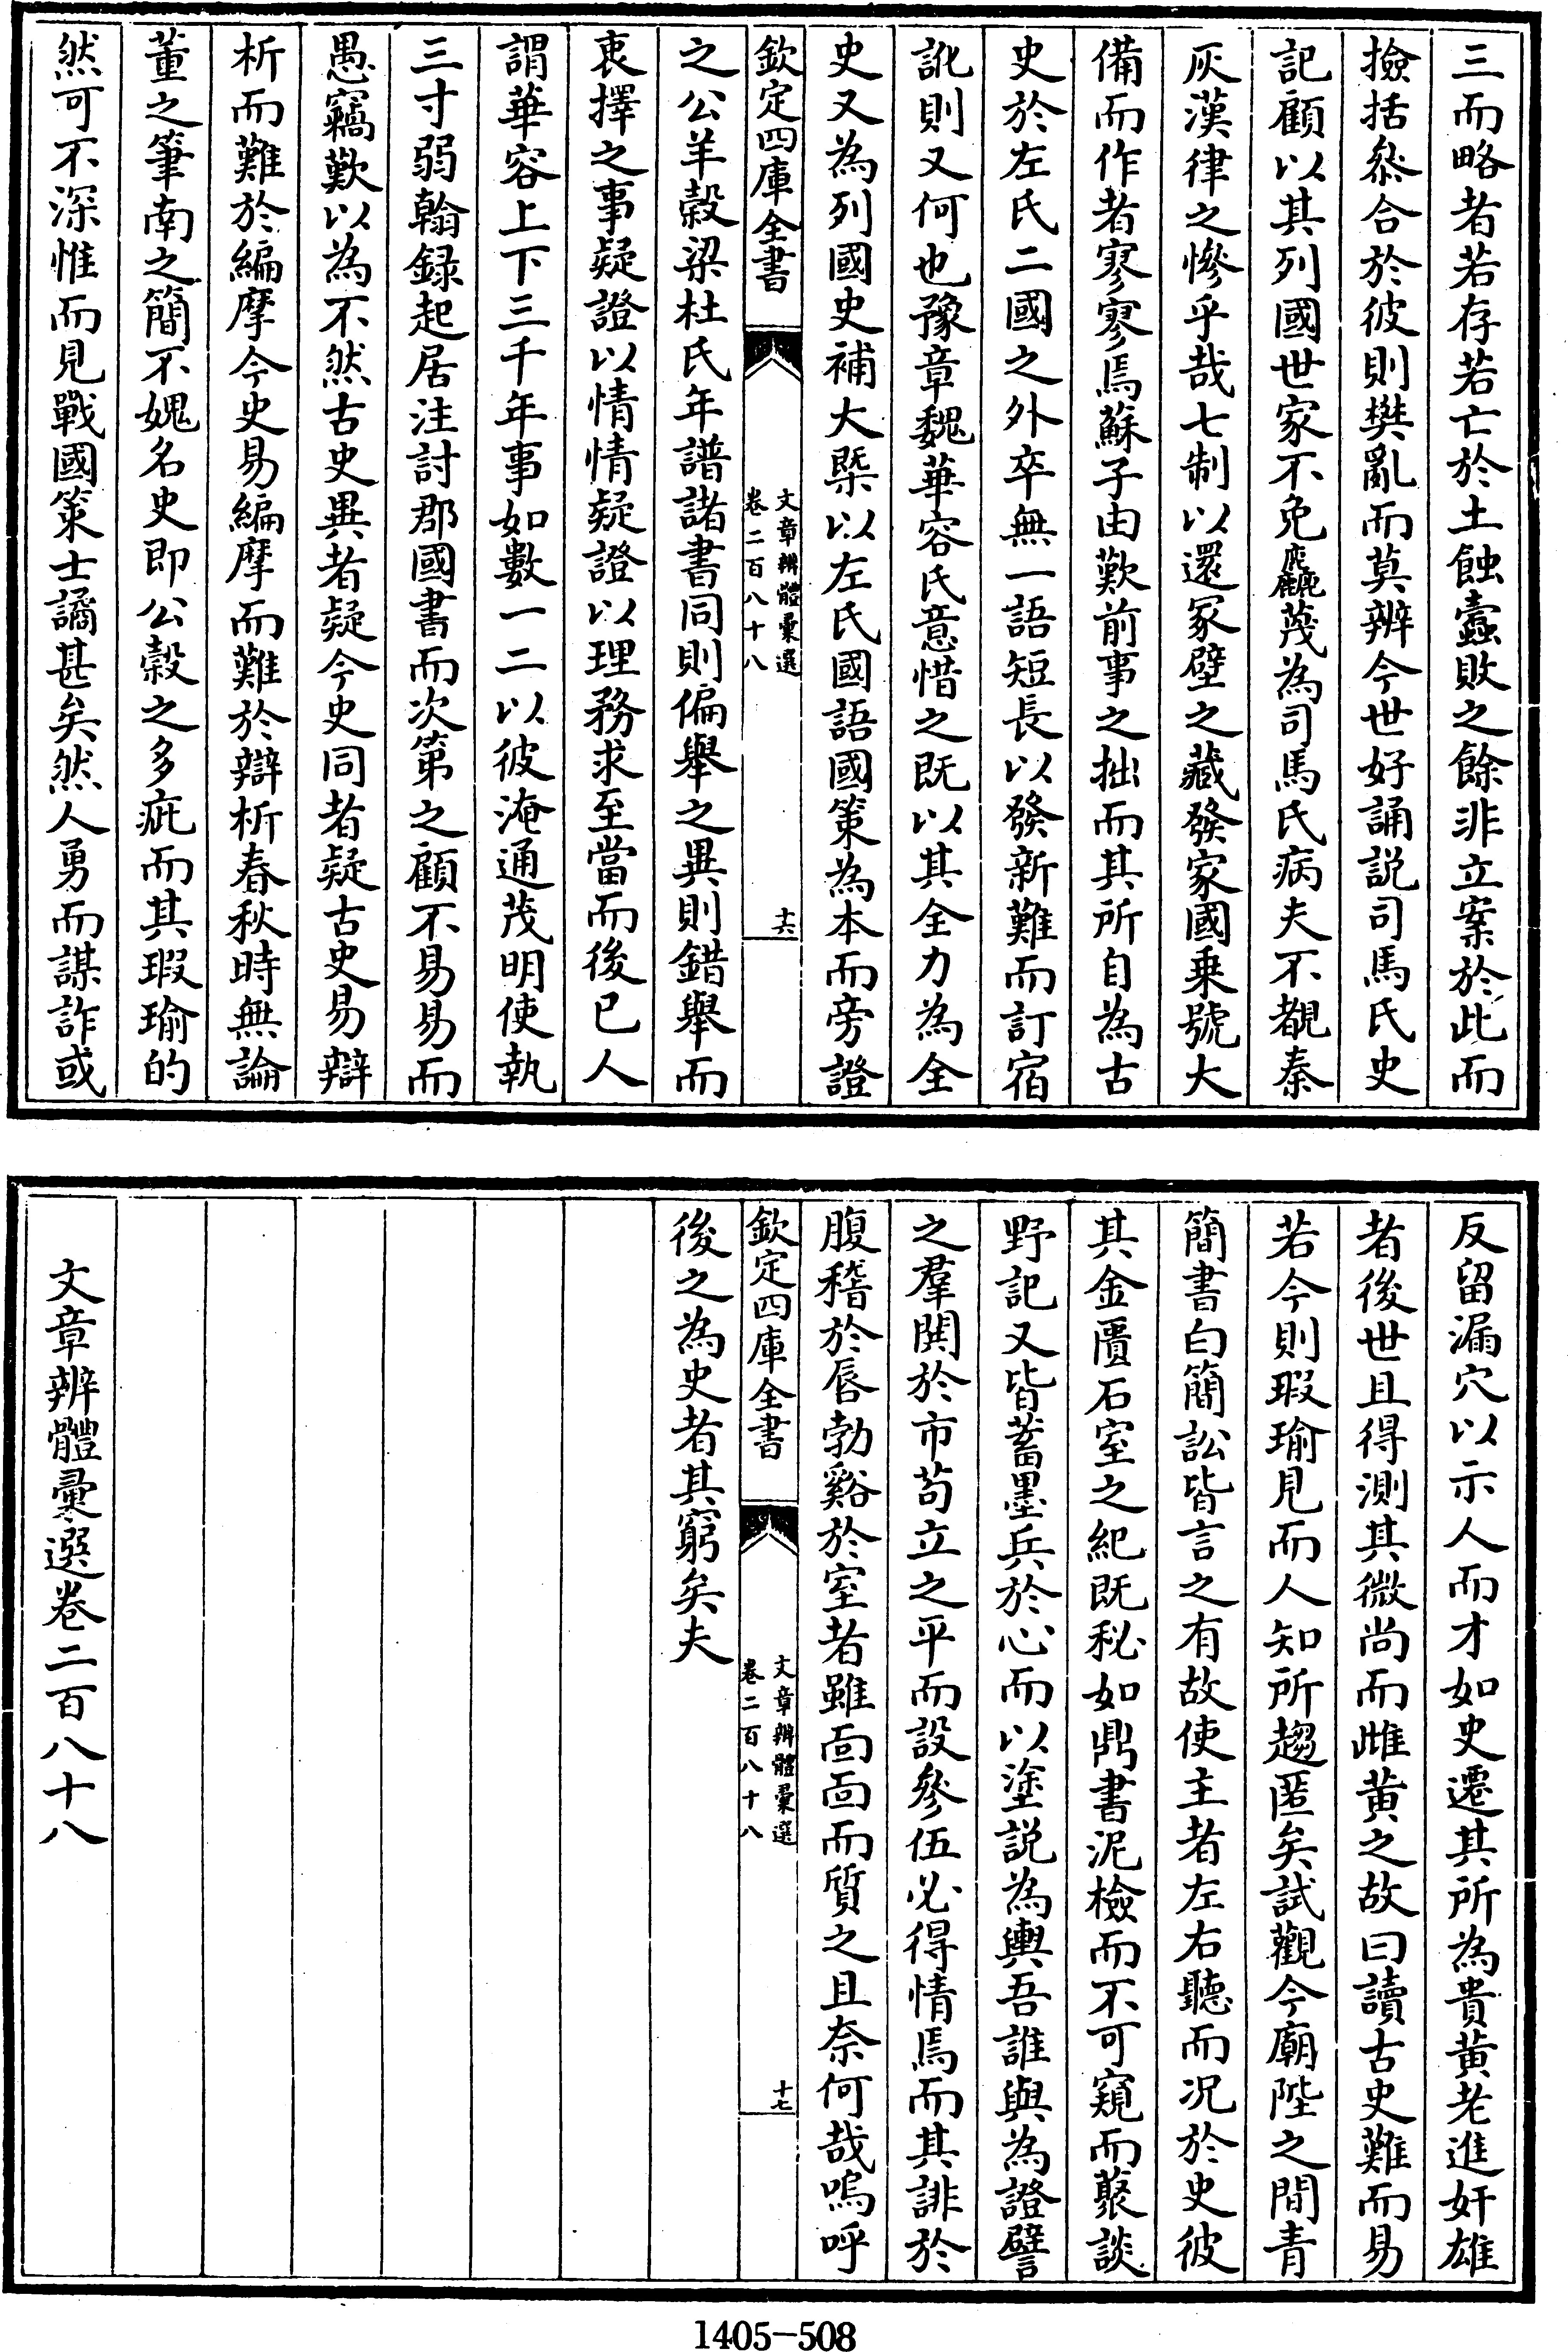 三而略者若存若亡於土蝕蠧敗之餘非立案於此而
撿括叅合於彼則樊亂而莫辨今世好誦説司馬氏史
記顧以其列國世家不免麤蔑為司馬氏病夫不覩秦
灰漢律之慘乎哉七制以還冢壁之藏發家國乗號大
備而作者寥寥焉蘇子由歎前事之拙而其所自為古
史於左氏二國之外卒無一語短長以發新難而訂宿
訛則又何也豫章魏華容氏意惜之既以其全力為全
史又為列國史補大槩以左氏國語國策為本而旁證
欽定四庫全書
文章辨體彚選
卷二百八十八
十六
之公羊榖梁杜氏年譜諸書同則偏舉之異則錯舉而
衷擇之事疑證以情情疑證以理務求至當而後已人
謂華容上下三千年事如數一二以彼淹通茂明使執
三寸弱翰録起居注討郡國書而次第之顧不易易而
愚竊歎以為不然古史異者疑今史同者疑古史易辯
析而難於編摩今史易編摩而難於辯析春秋時無論
董之筆南之簡不媿名史即公榖之多疵而其瑕瑜的
然可不深惟而見戰國策士譎甚矣然人勇而謀詐或
反留漏穴以示人而才如史遷其所為貴黄老進奸雄
者後世且得測其微尚而雌黄之故曰讀古史難而易
若今則瑕瑜見而人知所趨匿矣試觀今廟陛之間青
簡書白簡訟皆言之有故使主者左右聽而况於史彼
其金匱石室之紀既秘如鼎書泥檢而不可窺而藂談
野記又皆蓄墨兵於心而以塗説為輿吾誰與為證譬
之羣鬨於市茍立之平而設參伍必得情焉而其誹於
腹稽於唇勃谿於室者雖靣靣而質之且奈何哉嗚呼
欽定四庫全書
文章辨體彚選
卷二百八十八
十七
後之為史者其窮矣夫
文章辨體彚選卷二百八十八
1405-508